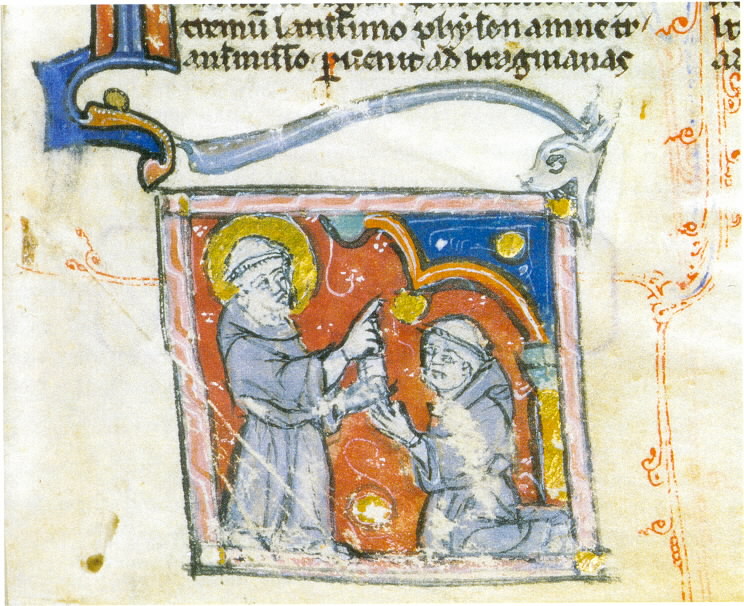 tremū latissimo physon amne tr/
ansmisso ꝑuenit ad bragmanas